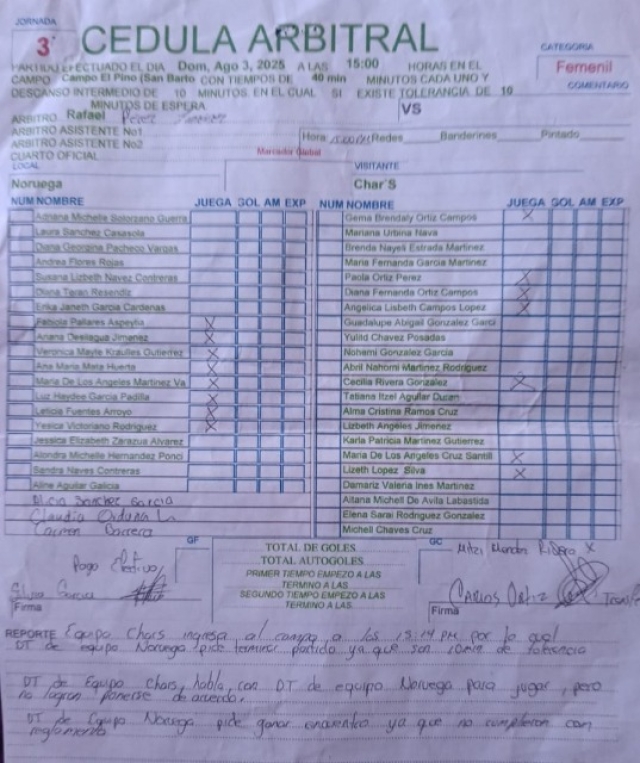 JORNADA
3°
CEDULA ARBITRAL
CATEGORIA
Femenil
COMENTARIO
PARTIDO EFECTUADO EL DIA Dom, Ago 3, 2025 A LAS 15:00 HORAS EN EL
CAMPO Campo El Pino (San Barto CON TIEMPOS DE 40 min MINUTOS CADA UNO Y
DESCANSO INTERMEDIO DE 10 MINUTOS. EN EL CUAL SI EXISTE TOLERANCIA DE 10
MINUTOS DE ESPERA
VS
ARBITRO Rafael Perez
ARBITRO ASISTENTE No1
ARBITRO ASISTENTE No2
Hora Redes Banderines Pintado
CUARTO OFICIAL
Marcador Global
LOCAL
VISITANTE
Noruega
Char'S
NUM NOMBRE JUEGA GOL AM EXP NUM NOMBRE JUEGA GOL AM EXP
Adriana Michelle Solorzano Guerra
Gema Brendaly Ortiz Campos X
Laura Sanchez Casasola
Mariana Urbina Nava
Diana Georgina Pacheco Vargas
Brenda Nayeli Estrada Martinez
Andrea Flores Rojas
Maria Fernanda Garcia Martinez
Susana Lizbeth Navez Contreras
Paola Ortiz Perez X
Diana Teran Resendiz
Diana Fernanda Ortiz Campos X
Erika Janeth Garcia Cardenas
Angelica Lisbeth Campos Lopez X
Fabiola Pallares Aspeytia X
Guadalupe Abigail Gonzalez Garci
Ariana Desiagua Jimenez X
Yulid Chavez Posadas
Veronica Mayte Kraulles Gutierrez X
Nohemi Gonzalez Garcia
Ana Maria Meta Huerta X
Abril Nahomi Martinez Rodriguez
Maria De Los Angeles Martinez Va X
Cecilia Rivera Gonzalez X
Luz Haydee Garcia Padilla X
Tatiana Itzel Aguilar Duran
Leticia Fuentes Arroyo X
Alma Cristina Ramos Cruz
Yesica Victoriano Rodriguez X
Lizbeth Angeles Jimenez
Jessica Elizabeth Zarazua Alvarez
Karla Patricia Martinez Gutierrez
Alondra Michelle Hernandez Ponci
Maria De Los Angeles Cruz Santill X
Sandra Naves Contreras
Lizeth Lopez Silva X
Aline Aguilar Galicia
Damariz Valeria Ines Martinez
Sanchez Garcia
Aitana Michell De Avila Labastida
Claudia Orduña L
Elena Sarai Rodriguez Gonzalez
Carmen Barrera
Michell Chaves Cruz
GF
TOTAL DE GOLES
GC
Mitzi Mendez X
TOTAL AUTOGOLES
Pago Efectivo
PRIMER TIEMPO EMPEZO A LAS
TERMINO A LAS
SEGUNDO TIEMPO EMPEZO A LAS
TERMINO A LAS
Firma
Carlos Ortiz
Firma
REPORTE Equipo Chars ingresa al campo a las 15:14 PM por lo qual
DT de equipo Noruega pide terminar partido ya que son 10min de tolerancia
DT de Equipo Chars, habla con DT de equipo Noruega para jugar, pero
no logran ponerse de acuerdo.
DT de Equipo Noruega pide ganar encuentro ya que no cumplieron con
reglamento